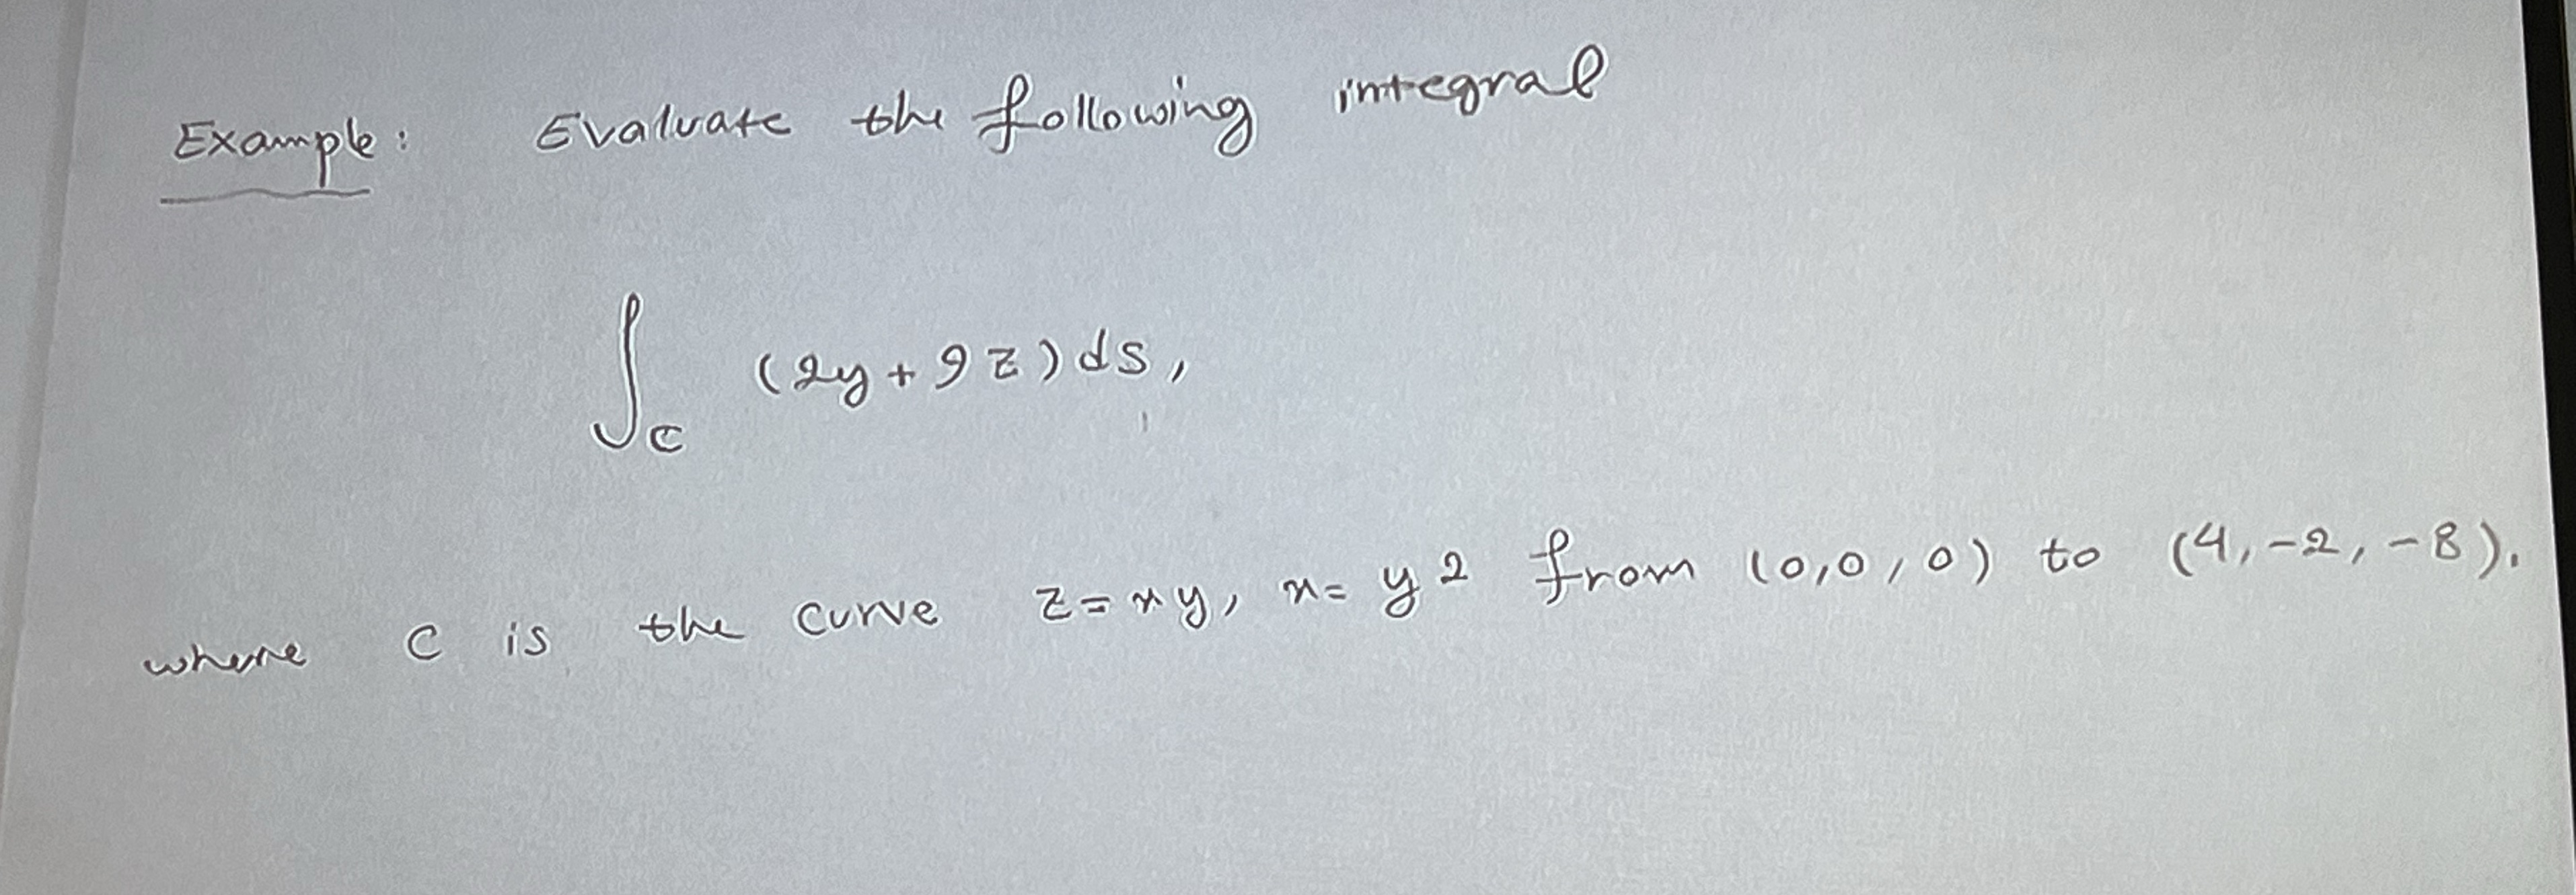 Example: Evaluate the following integral
∫_C (2y + 9z) ds,
where C is the curve z = xy, x = y² from (0,0,0) to (4,-2,-8).